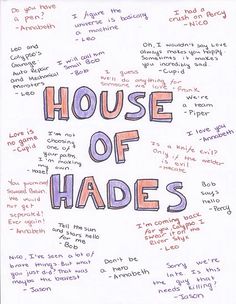 Do you have
a pen?
- Annabeth
I figure
the universe is basically
a machine
- Leo
I had a
crush on Percy
- Nico
Leo and
Calypso's
Garage
Auto Repair
and Mechanical
Monsters
- Leo
I will call him
Bob
I guess
we'd do anything for
someone we love - Frank
Oh, I wouldn't say Love
always makes you happy.
Sometimes it makes
you incredibly sad
- Cupid
We're
a team
- Piper
HOUSE
OF
HADES
Love is
no game
- Cupid
I'm not
choosing
one of
your paths.
I'm making
my own
- Hazel
I love you
- Annabeth
is a knife evil?
Only if the wielder
is
- Hecate
You promised
Seaweed Brain.
We would
not get
separated!
Ever again!
- Annabeth
Bob
says
hello
- Percy
Tell the sun
and stars hello
for me
- Bob
I'm coming back
for you Calypso
I swear it on the
River Styx
- Leo
Nico, I've seen a lot of
brave things. But what
you just did? That was
maybe the bravest
- Jason
Don't
be a
hero
- Annabeth
Sorry we're
late. Is this
the guy that
needs killing?
- Jason